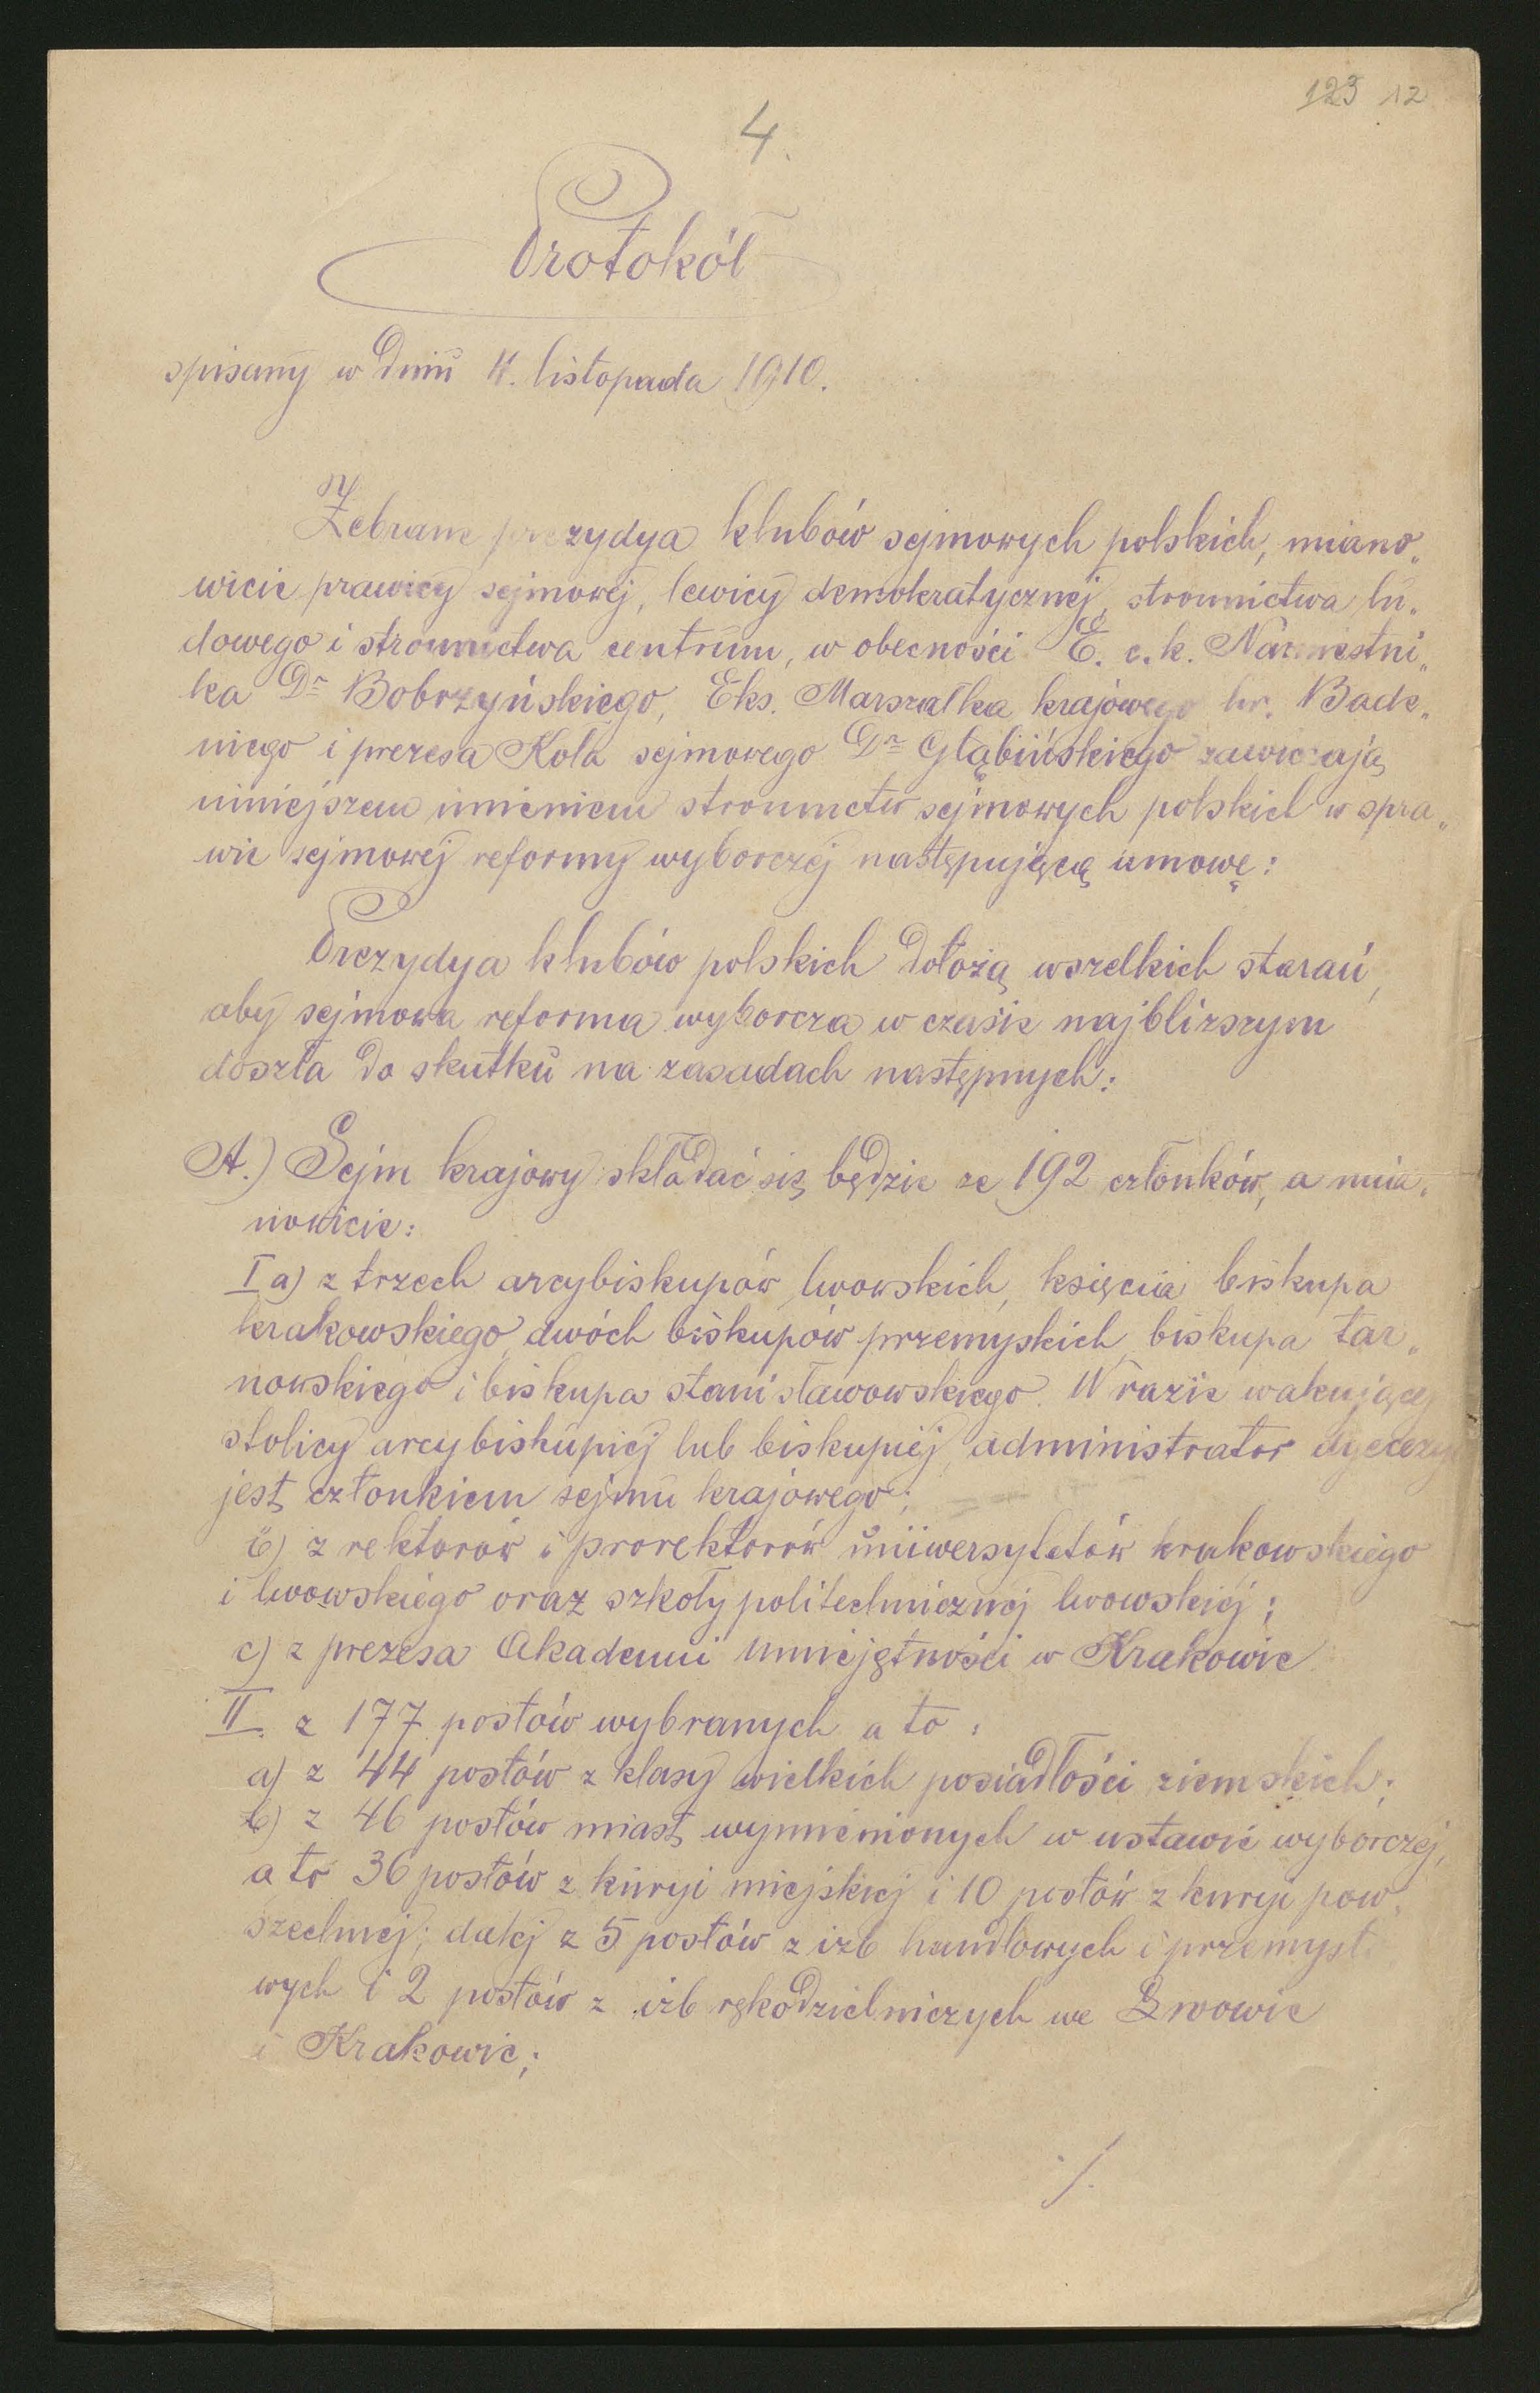 123 12
4.
Protokół
spisany w dniu 4. listopada 1910.
Zebrane prezydya klubów sejmowych polskich, miano„
wicie prawicy sejmowej, lewicy demokratycznej, stronnictwa lu„
dowego i stronnictwa centrum, w obecności E. c. k. Namiestni„
ka Dr Bobrzyńskiego, Eks. Marszałka krajowego hr. Bade„
niego i prezesa Koła sejmowego Dr Głąbińskiego zawierają
niniejszem imieniem stronnictw sejmowych polskich w spra„
wie sejmowej reformy wyborczej następującą umowę:
Prezydya klubów polskich dołożą wszelkich starań,
aby sejmowa reforma wyborcza w czasie najbliższym
doszła do skutku na zasadach następnych:
A.) Sejm krajowy składać się będzie ze 192 członków, a mia„
nowicie:
I a) z trzech arcybiskupów lwowskich, księcia biskupa
krakowskiego, dwóch biskupów przemyskich, biskupa tar„
nowskiego i biskupa stanisławowskiego. W razie wakującej
stolicy arcybiskupiej lub biskupiej, administrator dyecezyi
jest członkiem sejmu krajowego;
b) z rektorów i prorektorów uniwersytetów krakowskiego
i lwowskiego oraz szkoły politechnicznej lwowskiej;
c) z prezesa Akademii Umiejętności w Krakowie
II. z 177 posłów wybranych a to:
a) z 44 posłów z klasy wielkich posiadłości ziemskich;
b) z 46 posłów miast, wymienionych w ustawie wyborczej,
a to 36 posłów z kuryi miejskiej i 10 posłów z kuryi pow„
szechnej; dalej z 5 posłów z izb handlowych i przemysło
wych i 2 posłów z izb rękodzielniczych we Lwowie
i Krakowie;
./.